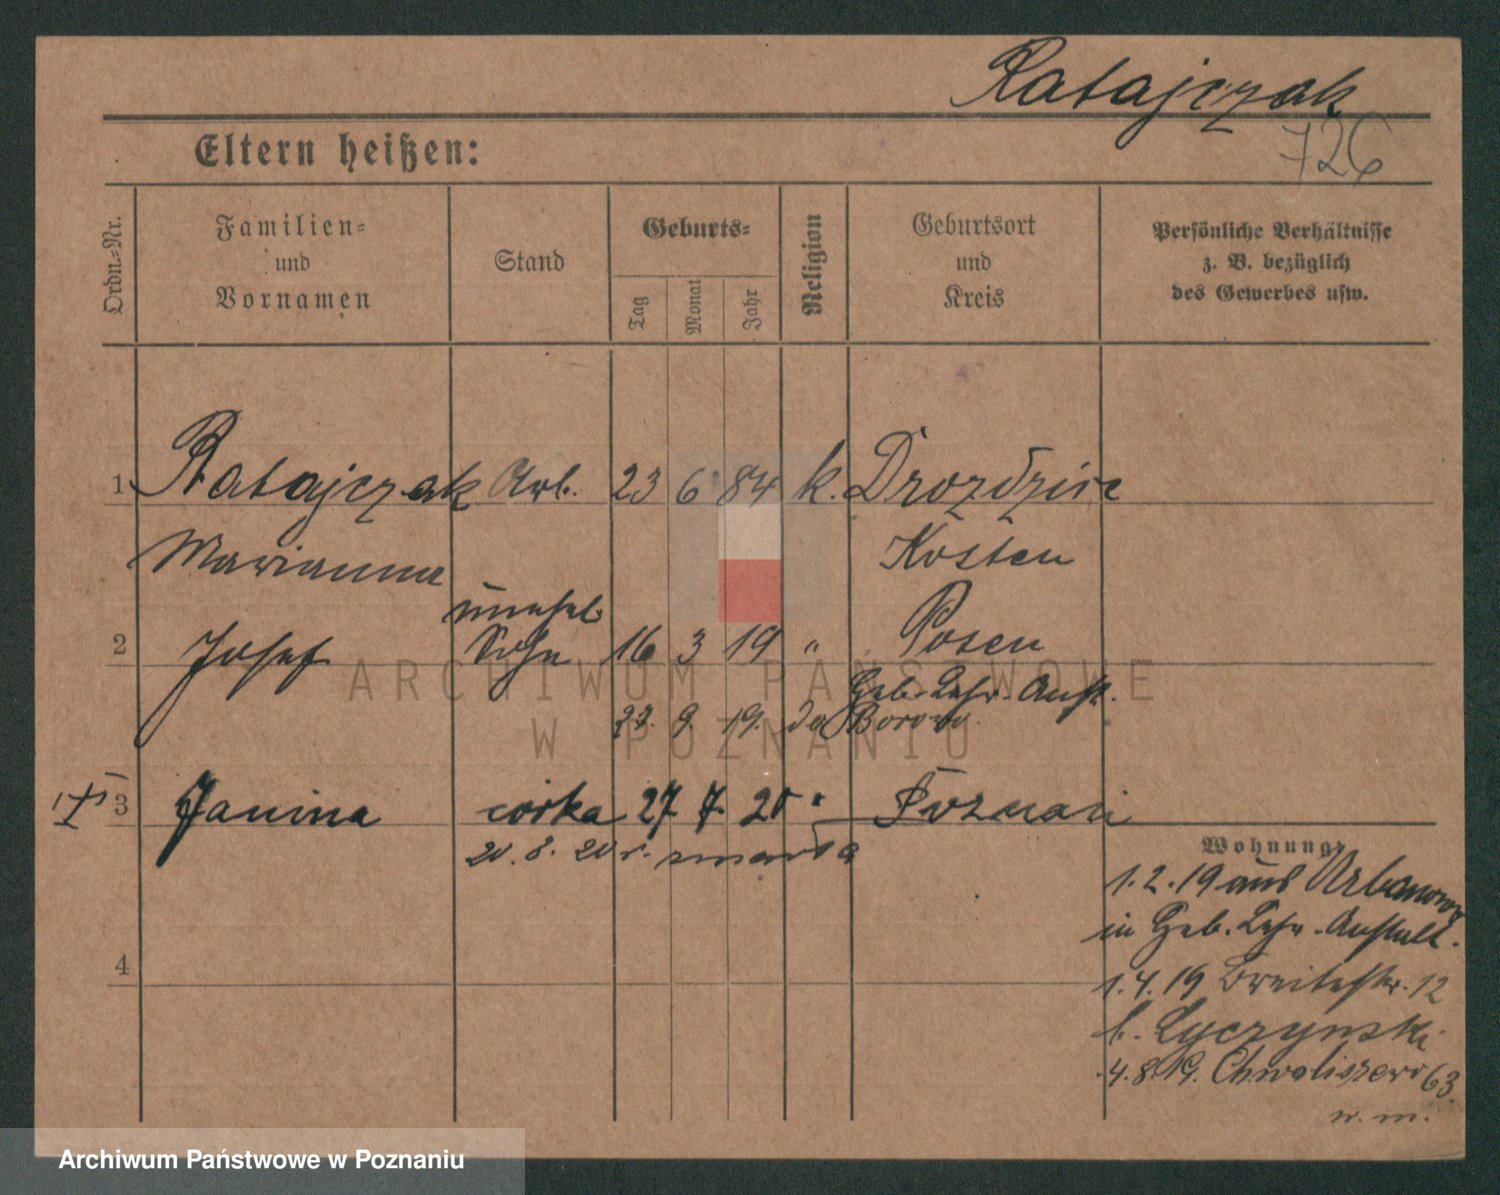 Ratajczak
726
Eltern heißen:
Ordn.-Nr.
Familien- und Vornamen
Stand
Geburts-
Tag
Monat
Jahr
Religion
Geburtsort und Kreis
Persönliche Verhältnisse z. B. bezüglich des Gewerbes usw.
1 Ratajczak Arb. 23 6 84 k. Drozdzice
Marianna Kosten
unehel.
2 Josef Sohn 16 3 19 " Posen
Geb. Lehr. Anst.
23. 9. 19. do Borowo
3 Janina córka 27 7 20 " Poznań
20. 8. 20 r. zmarła
4
Wohnung:
1.2.19 aus Urbanowo
in Geb. Lehr. Anstalt.
1.4.19 Breitestr. 12
b. Łyczynski
4.8.19. Chwaliszewo 63.
w. m.
ARCHIWUM PAŃSTWOWE
W POZNANIU
Archiwum Państwowe w Poznaniu